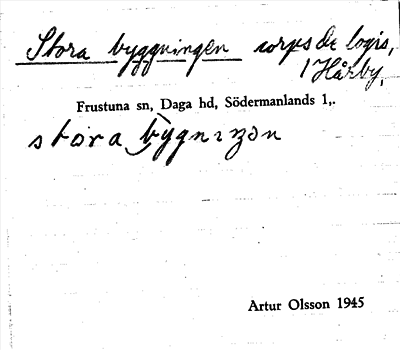 Stora byggningen corps de logis,
i Hårby,
Frustuna sn, Daga hd, Södermanlands l,.
stora bygnıŋən
Artur Olsson 1945